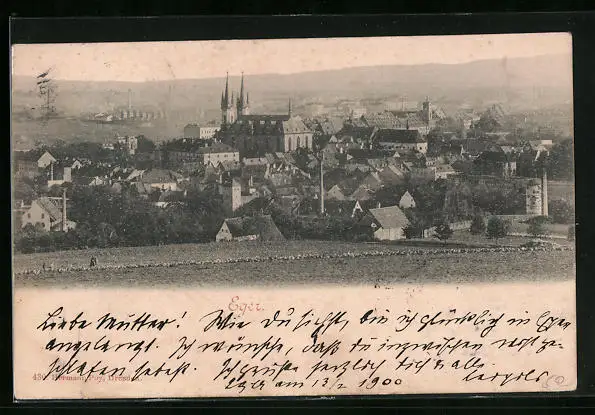 Eger.
Liebe Mutter! Wie Du siehst, bin ich glücklich in Eger
angelangt. Ich wünsche, daß Du inzwischen wohl ge-
schlafen hast. Ich grüße herzlich Dich u. alle
Eger am 13/2 1900
Hermann Poy, Dresden.